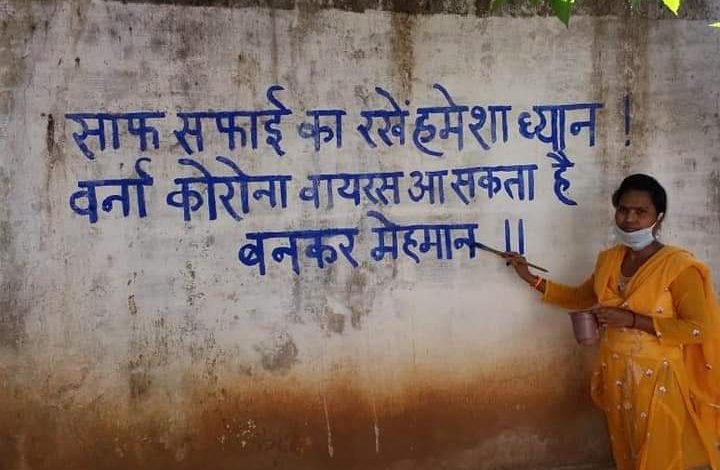 साफ सफाई का रखें हमेशा ध्यान !
वर्ना कोरोना वायरस आ सकता है
बनकर मेहमान !!